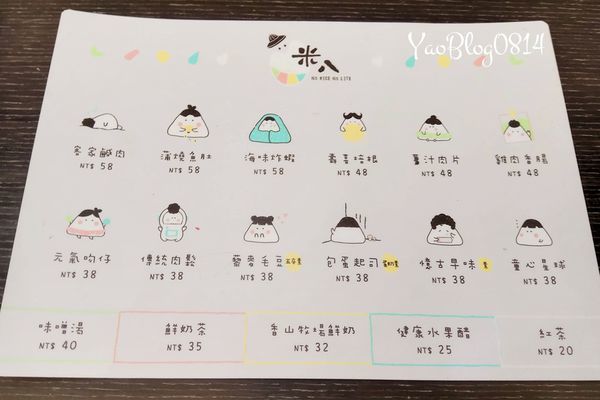 YaoBlog0814
米八
NO RICE NO LIFE
客家鹹肉 蒲燒魚肚 海味炸蝦 薑汁肉片 雞肉香腸
NT$ 58 NT$ 58 NT$ 58 NT$ 48 NT$ 48 NT$ 48
元氣吻仔 傳統肉鬆 藜麥毛豆 五辛素 包蛋起司 憶古早味 素 童心星球
NT$ 38 NT$ 38 NT$ 38 NT$ 38 NT$ 38 NT$ 38
味噌湯 鮮奶茶 香山牧場鮮奶 健康水果醋 紅茶
NT$ 40 NT$ 35 NT$ 32 NT$ 25 NT$ 20